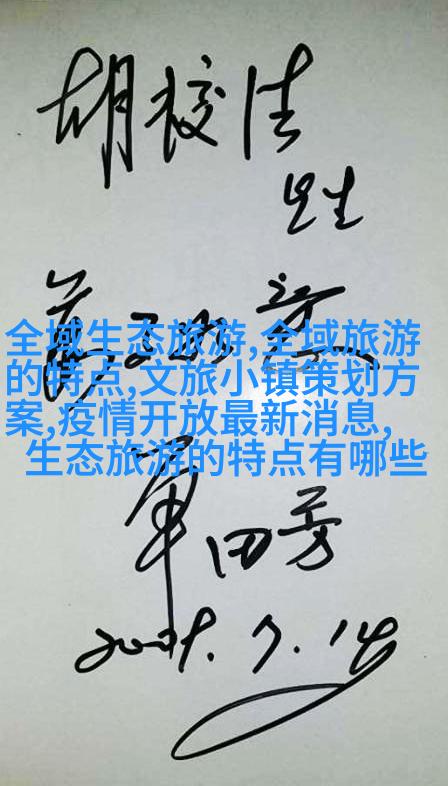 胡
先生
全域生态旅游,全域旅游
的特点,文旅小镇策划方
案,疫情开放最新消息,
生态旅游的特点有哪些
单田芳
7.14